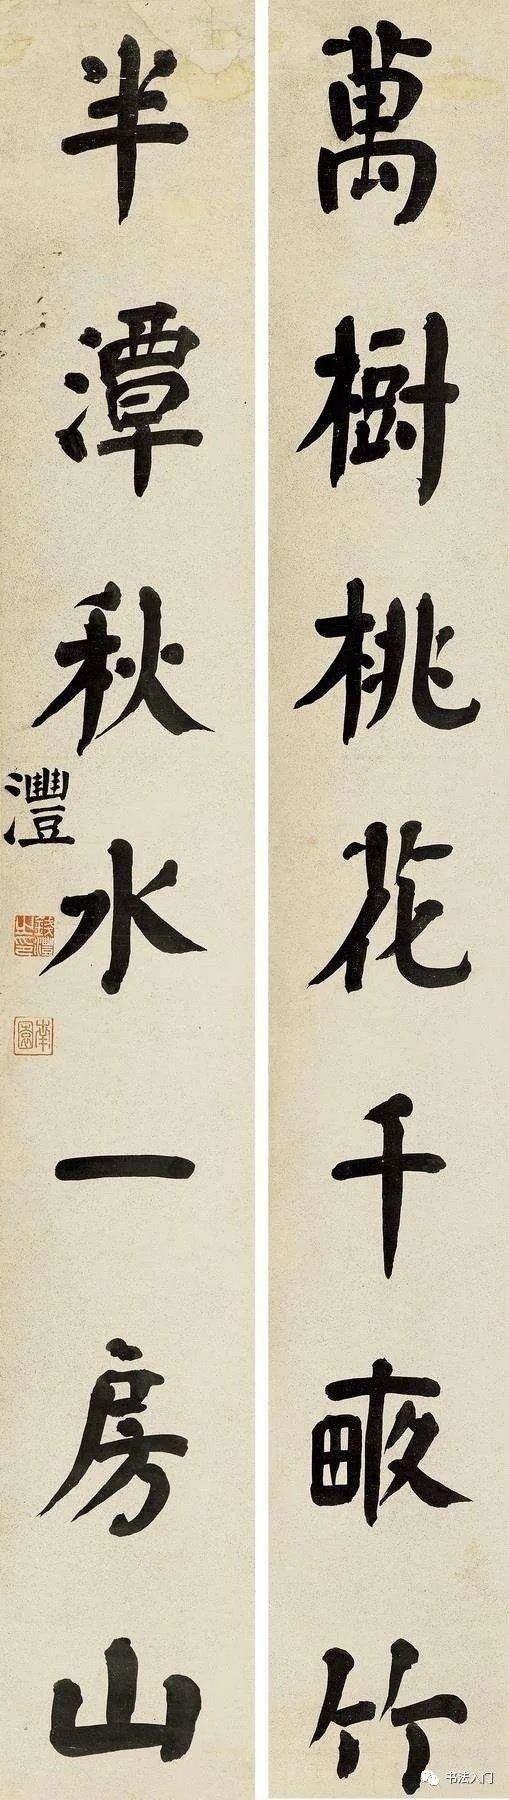 萬樹桃花千畝竹
半潭秋水一房山
灃
錢灃之印
南園
书法入门